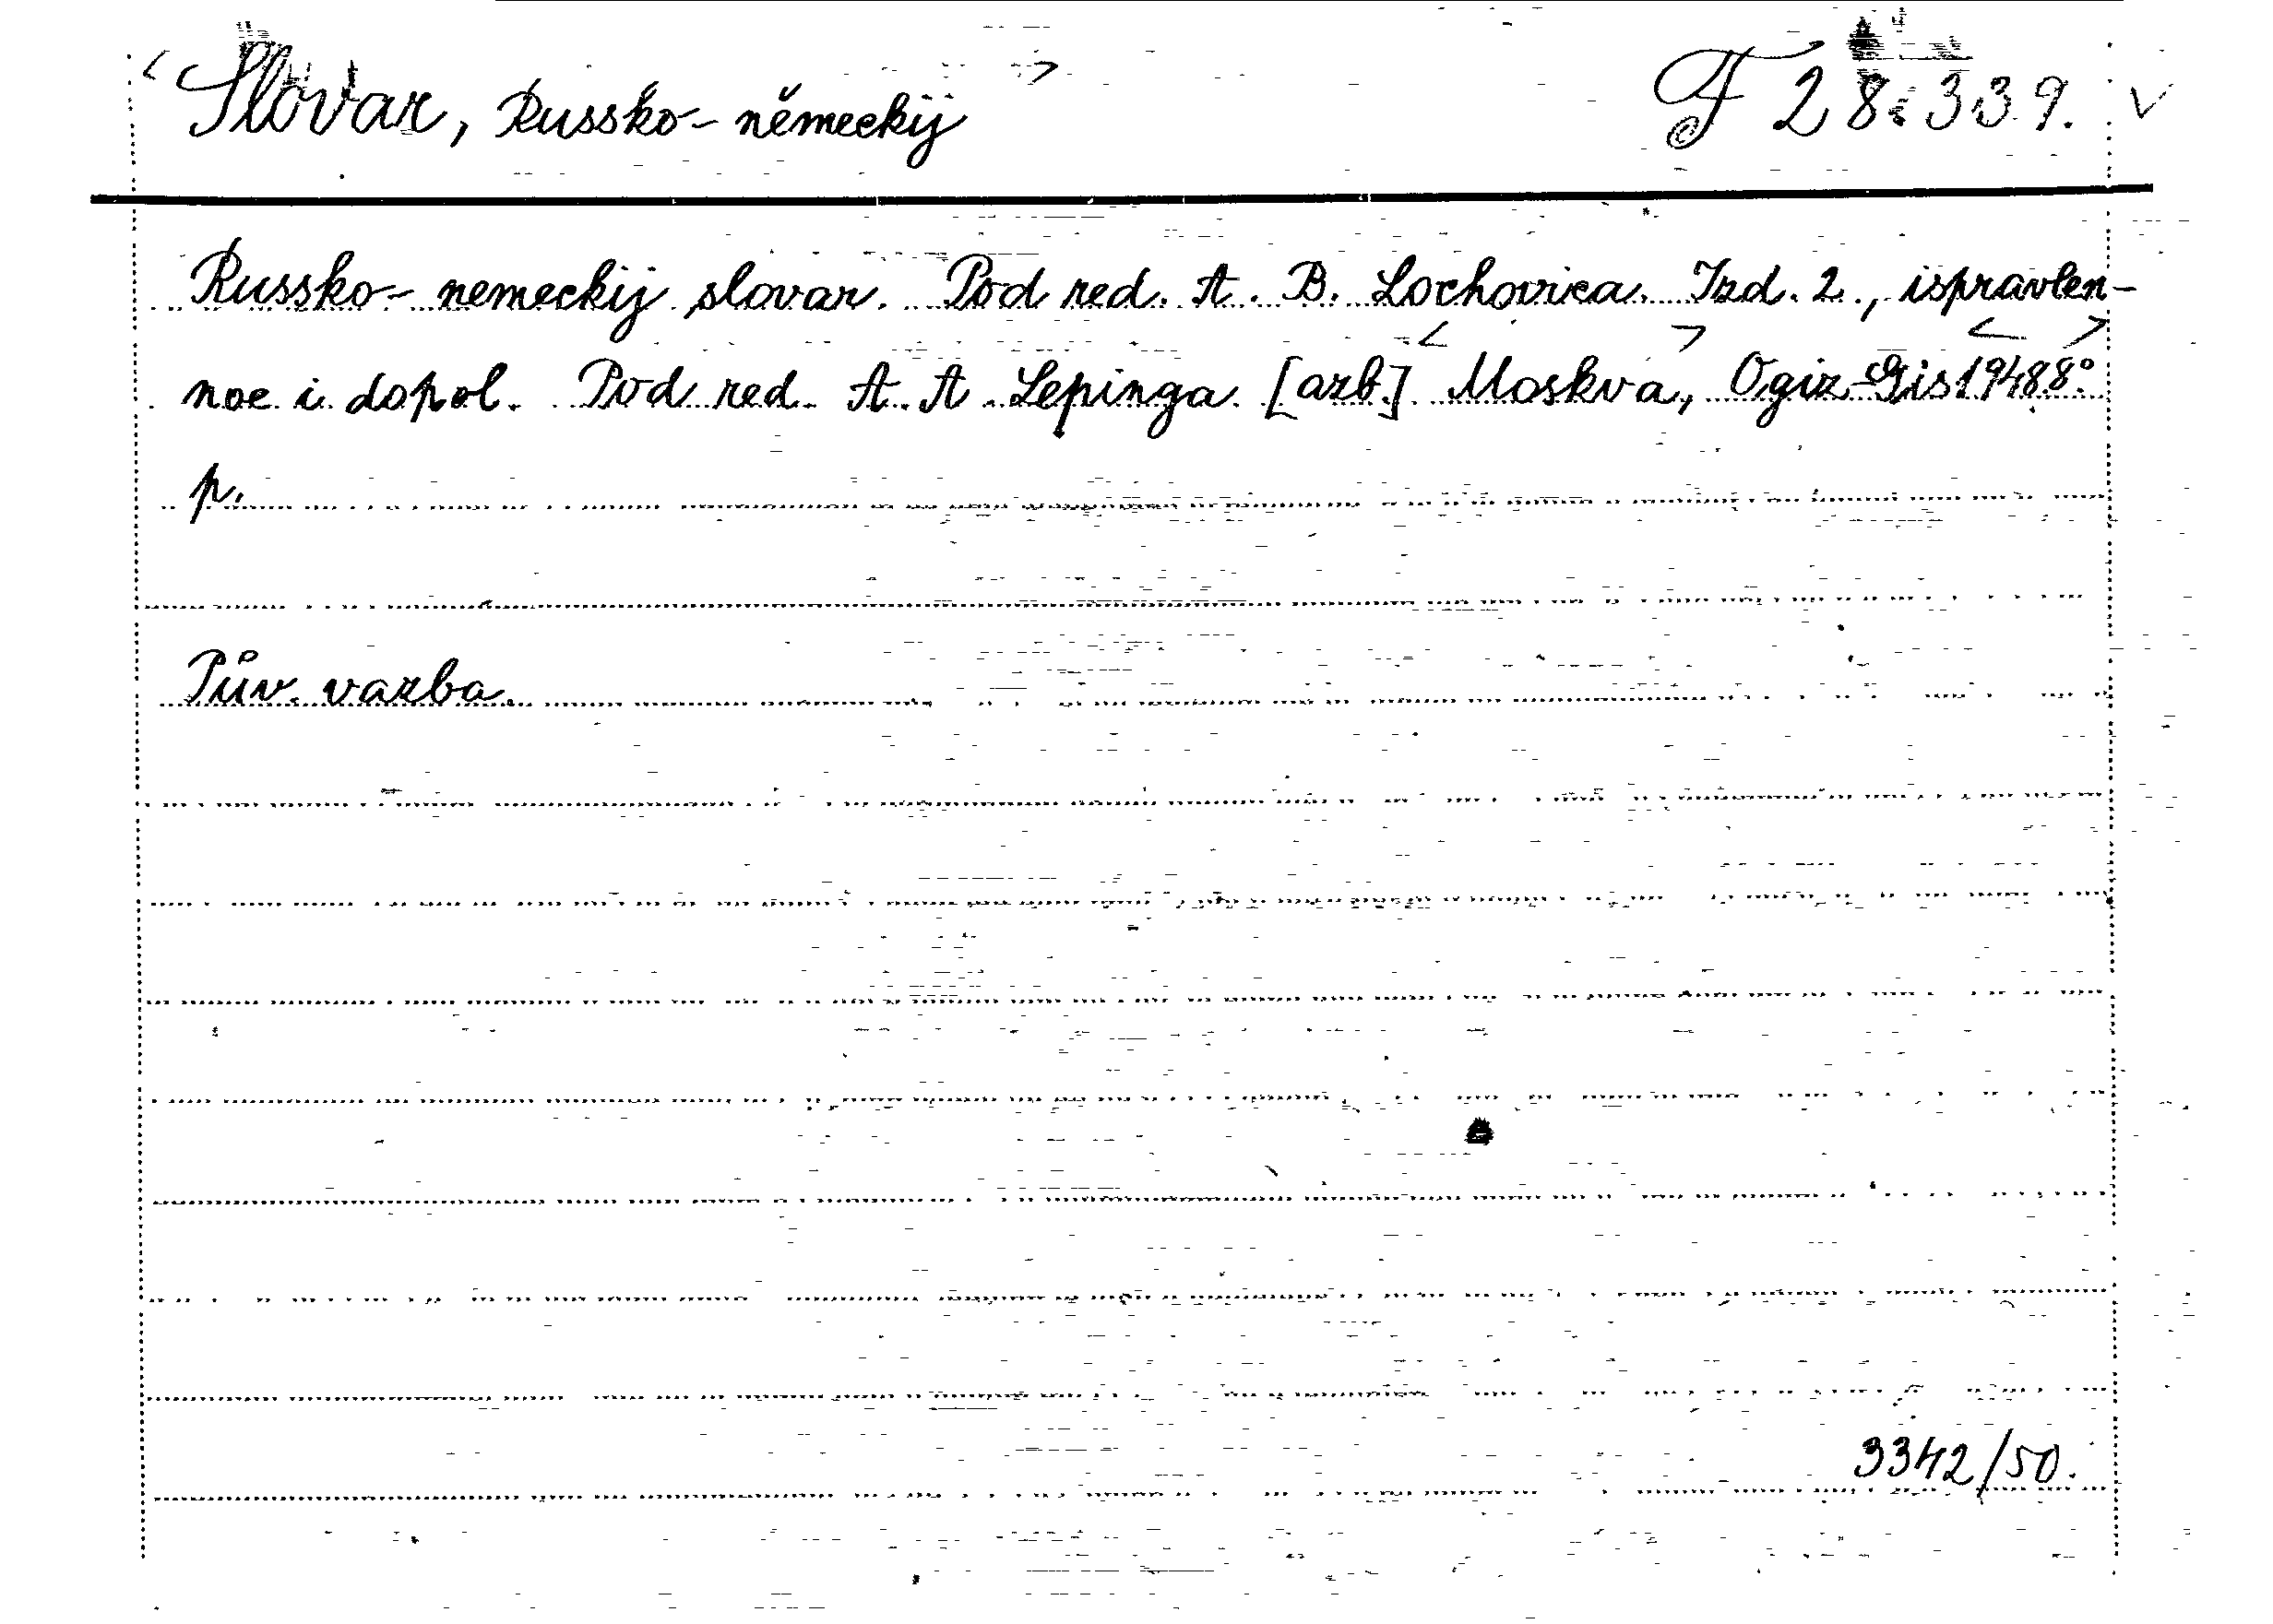 < Slovar, Russko-německij > F 28.339. V
Russko-nemeckij slovar. Pod red. A. B. Lochovica. Izd. 2., ispravlen-
noe i dopol. Pod red. A. A. Lepinga. [azb.] <Moskva>, Ogiz-Gis <1948> 8°.
p.
Pův. vazba.
3342/50.